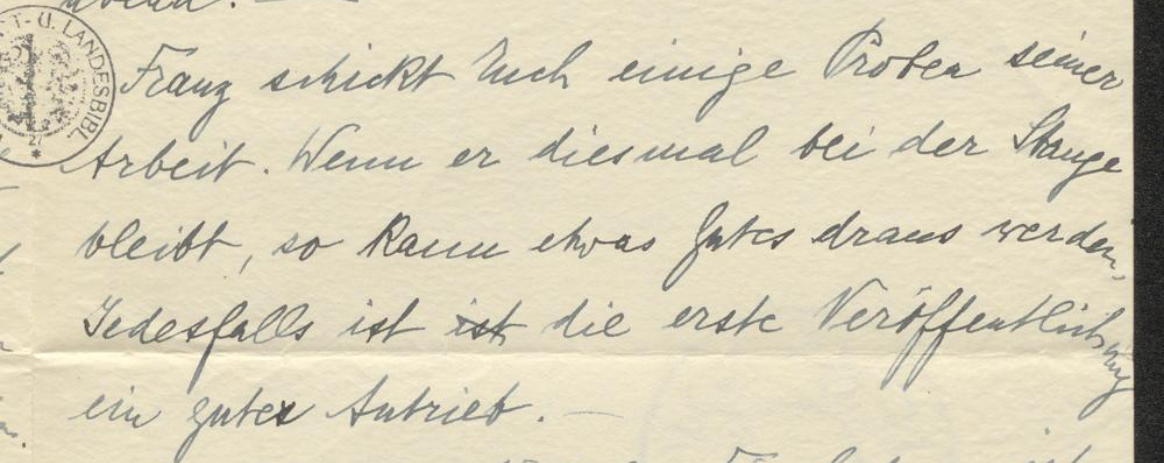 Franz schickt Euch einige Proben seiner
Arbeit. Wenn er diesmal bei der Stange
bleibt, so kann etwas Gutes draus werden,
Jedesfalls ist ist die erste Veröffentlichung
ein guter Antrieb. —
U. LANDESBIBL.
27